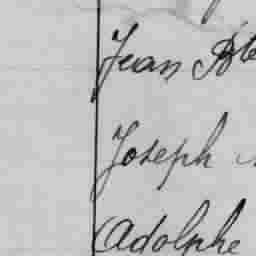 Jean Bte
Joseph
Adolphe